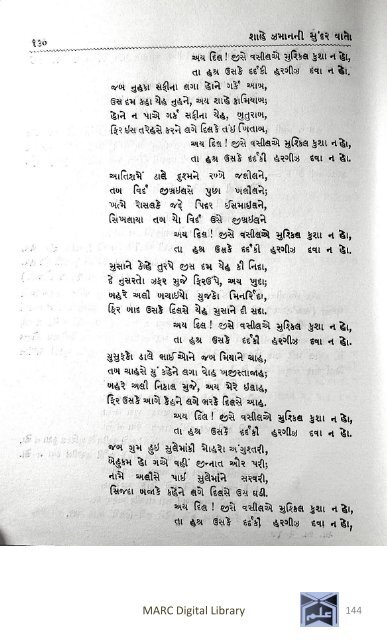 ૧૩૦ શાહે ઝમાનની સુંદર વાતો
અય દિલ! જીસે વસીલએ મુશ્કિલ કુશા ન હો,
તા હશ્ર ઉસકે દર્દકી હરગીઝ દવા ન હો.
જબ નુહકા સફીના લગા હોને ગર્ક આબ,
ઉસ દમ કહા યેહ નુહને, અય શાહે કામિયાબ;
હોને ન પાએ ગર્ક સફીના યેહ, બુતુરાબ,
ફિર ઇસ તરેહસે કરને લગે દિલકે તંઇ ખિતાબ,
અય દિલ! જીસે વસીલએ મુશ્કિલ કુશા ન હો,
તા હશ્ર ઉસકે દર્દકી હરગીઝ દવા ન હો.
આતિશમેં ડાલે દુશ્મને રબ્બે જલીલને;
તબ વિર્દ જીબ્રઇલસે પુછા ખલીલને;
ખત્મે રોસલકે જદ્દે પિદર ઇસમાઇલને,
સિખલાયા તબ યે વિર્દ ઉસે જીબ્રઇલને
અય દિલ! જીસે વસીલએ મુશ્કિલ કુશા ન હો,
તા હશ્ર ઉસકે દર્દકી હરગીઝ દવા ન હો.
મુસાને કોહે તુરપે જીસ દમ યેહ કી નિદા,
દે નુસરતો ઝફર મુજે ફિરઉંપે, અય ખુદા;
બહરે અલી બચાઇયો મુજકો મિનર્રિદા,
ફિર બાદ ઉસકે દિલસે યેહ મુસાને દી સદા.
અય દિલ! જીસે વસીલએ મુશ્કિલ કુશા ન હો,
તા હશ્ર ઉસકે દર્દકી હરગીઝ દવા ન હો.
યુસુફકો ડાલે ભાઈઓને જબ મિયાને ચાહ,
તબ ચાહસે યું કહેને લગા વોહ બઈલ્તજાહ;
બહરે અલી નિકાલ મુજે, અય મેરે ઇલાહ,
ફિર ઉસકે આગે કેહને લગે ભરકે દિલસે આહ.
અય દિલ! જીસે વસીલએ મુશ્કિલ કુશા ન હો,
તા હશ્ર ઉસકે દર્દકી હરગીઝ દવા ન હો.
જબ ગુમ હુઇ સુલેમાંકી મોહરો અંગુશ્તરી,
બેહુકમ હો ગએ વહીં જીન્નાત ઓર પરી;
નામે અલીસે પાઈ સુલેમાંને સરવરી,
સિજદા બજાકે કહેને લગે દિલસે ઉસ ઘડી.
અય દિલ! જીસે વસીલએ મુશ્કિલ કુશા ન હો,
તા હશ્ર ઉસકે દર્દકી હરગીઝ દવા ન હો,
MARC Digital Library 144